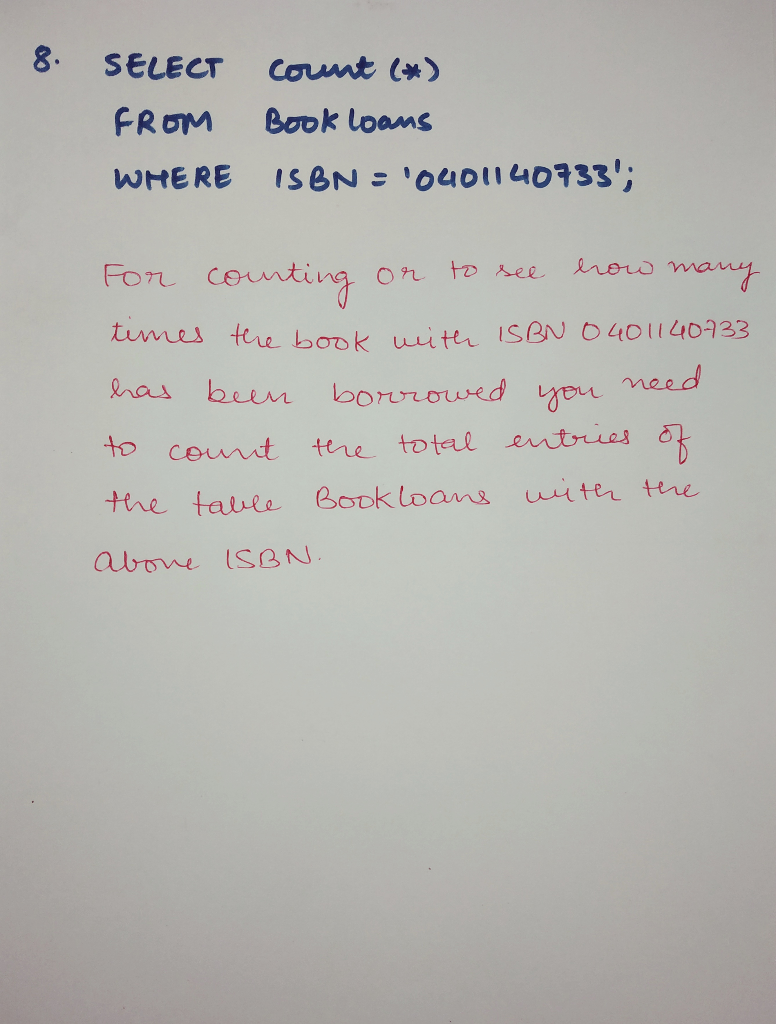 8. SELECT Count (*)
FROM Book loans
WHERE ISBN = '0401140733';
For counting or to see how many
times the book with ISBN 0401140733
has been borrowed you need
to count the total entries of
the table Bookloans with the
above ISBN.